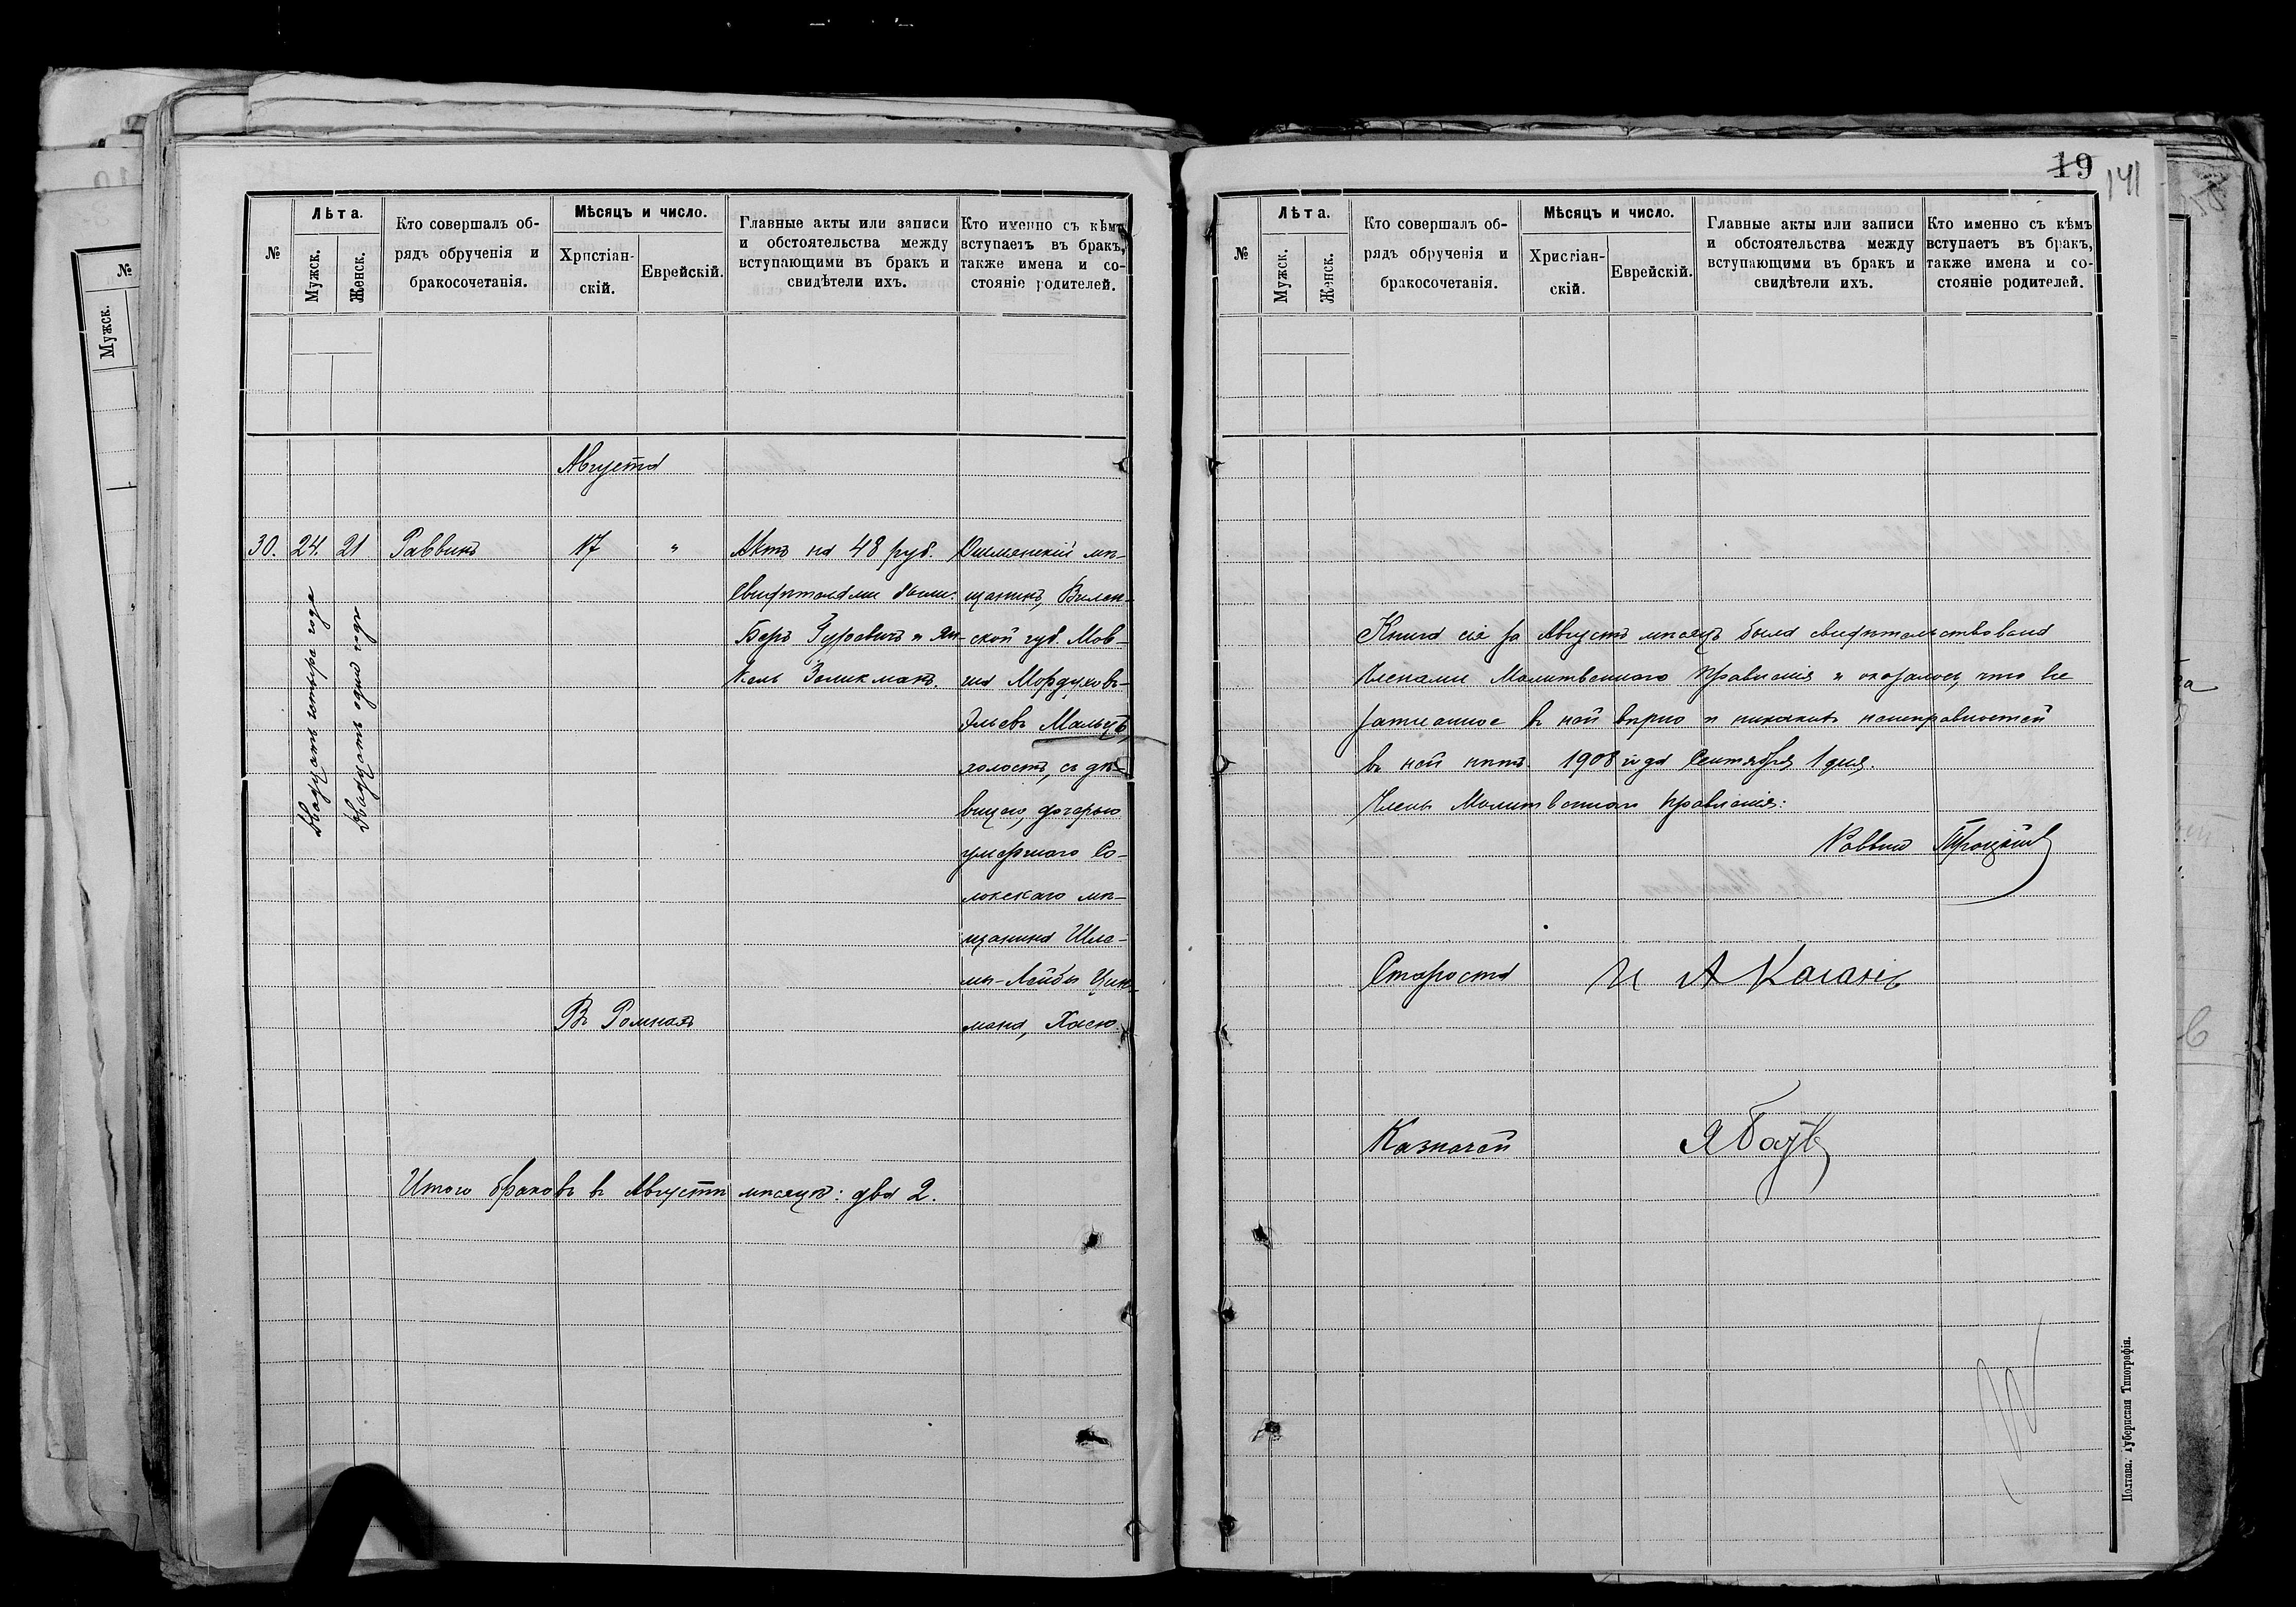 №
Лѣта.
Мужск.
Женск.
Кто совершалъ об-
рядъ обрученія и
бракосочетанія.
Мѣсяцъ и число.
Христіан-
скій.
Еврейскій.
Главные акты или записи
и обстоятельства между
вступающими въ бракъ и
свидѣтели ихъ.
Кто именно съ кѣмъ
вступаетъ въ бракъ,
также имена и со-
стояніе родителей.
Августа
30.
24.
Двадцать четыре года
21
Двадцать одинъ годъ
Раввинъ
17
"
Въ Ромнахъ
Актъ на 48 руб.
Свидѣтелями были:
Беръ Гуревичъ и Ян-
кель Зеликманъ.
Ошмянскій мѣ-
щанинъ, Вилен-
ской губ. Мов-
ша Мордуховъ-
Эльевъ Мальцъ,
холостъ, съ дѣ-
вицею, дочерью
умершаго Со-
локскаго мѣ-
щанина Шле-
мы-Лейбы Цук-
мана, Хасею.
Итого браковъ въ Августѣ мѣсяцѣ: два 2.
19
141
№
Лѣта.
Мужск.
Женск.
Кто совершалъ об-
рядъ обрученія и
бракосочетанія.
Мѣсяцъ и число.
Христіан-
скій.
Еврейскій.
Главные акты или записи
и обстоятельства между
вступающими въ бракъ и
свидѣтели ихъ.
Кто именно съ кѣмъ
вступаетъ въ бракъ,
также имена и со-
стояніе родителей.
Книга сія за Августъ мѣсяцъ была свидѣтельствована
Членами Молитвеннаго Правленія и оказалось, что все
записанное въ ней вѣрно и никакихъ неисправностей
въ ней нѣтъ. 1908 года Сентября 1 дня.
Члены Молитвеннаго Правленія:
Раввинъ Троцкій
Староста И А Каганъ
Казначей Я
Полтава. Губернская Типографія.
№
Мужск.